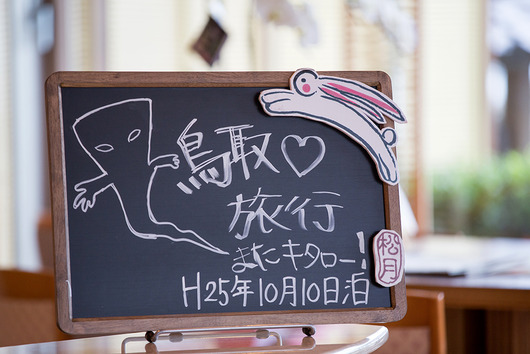 鳥取♡
旅行
またキタロー!
H25年10月10日泊
松月